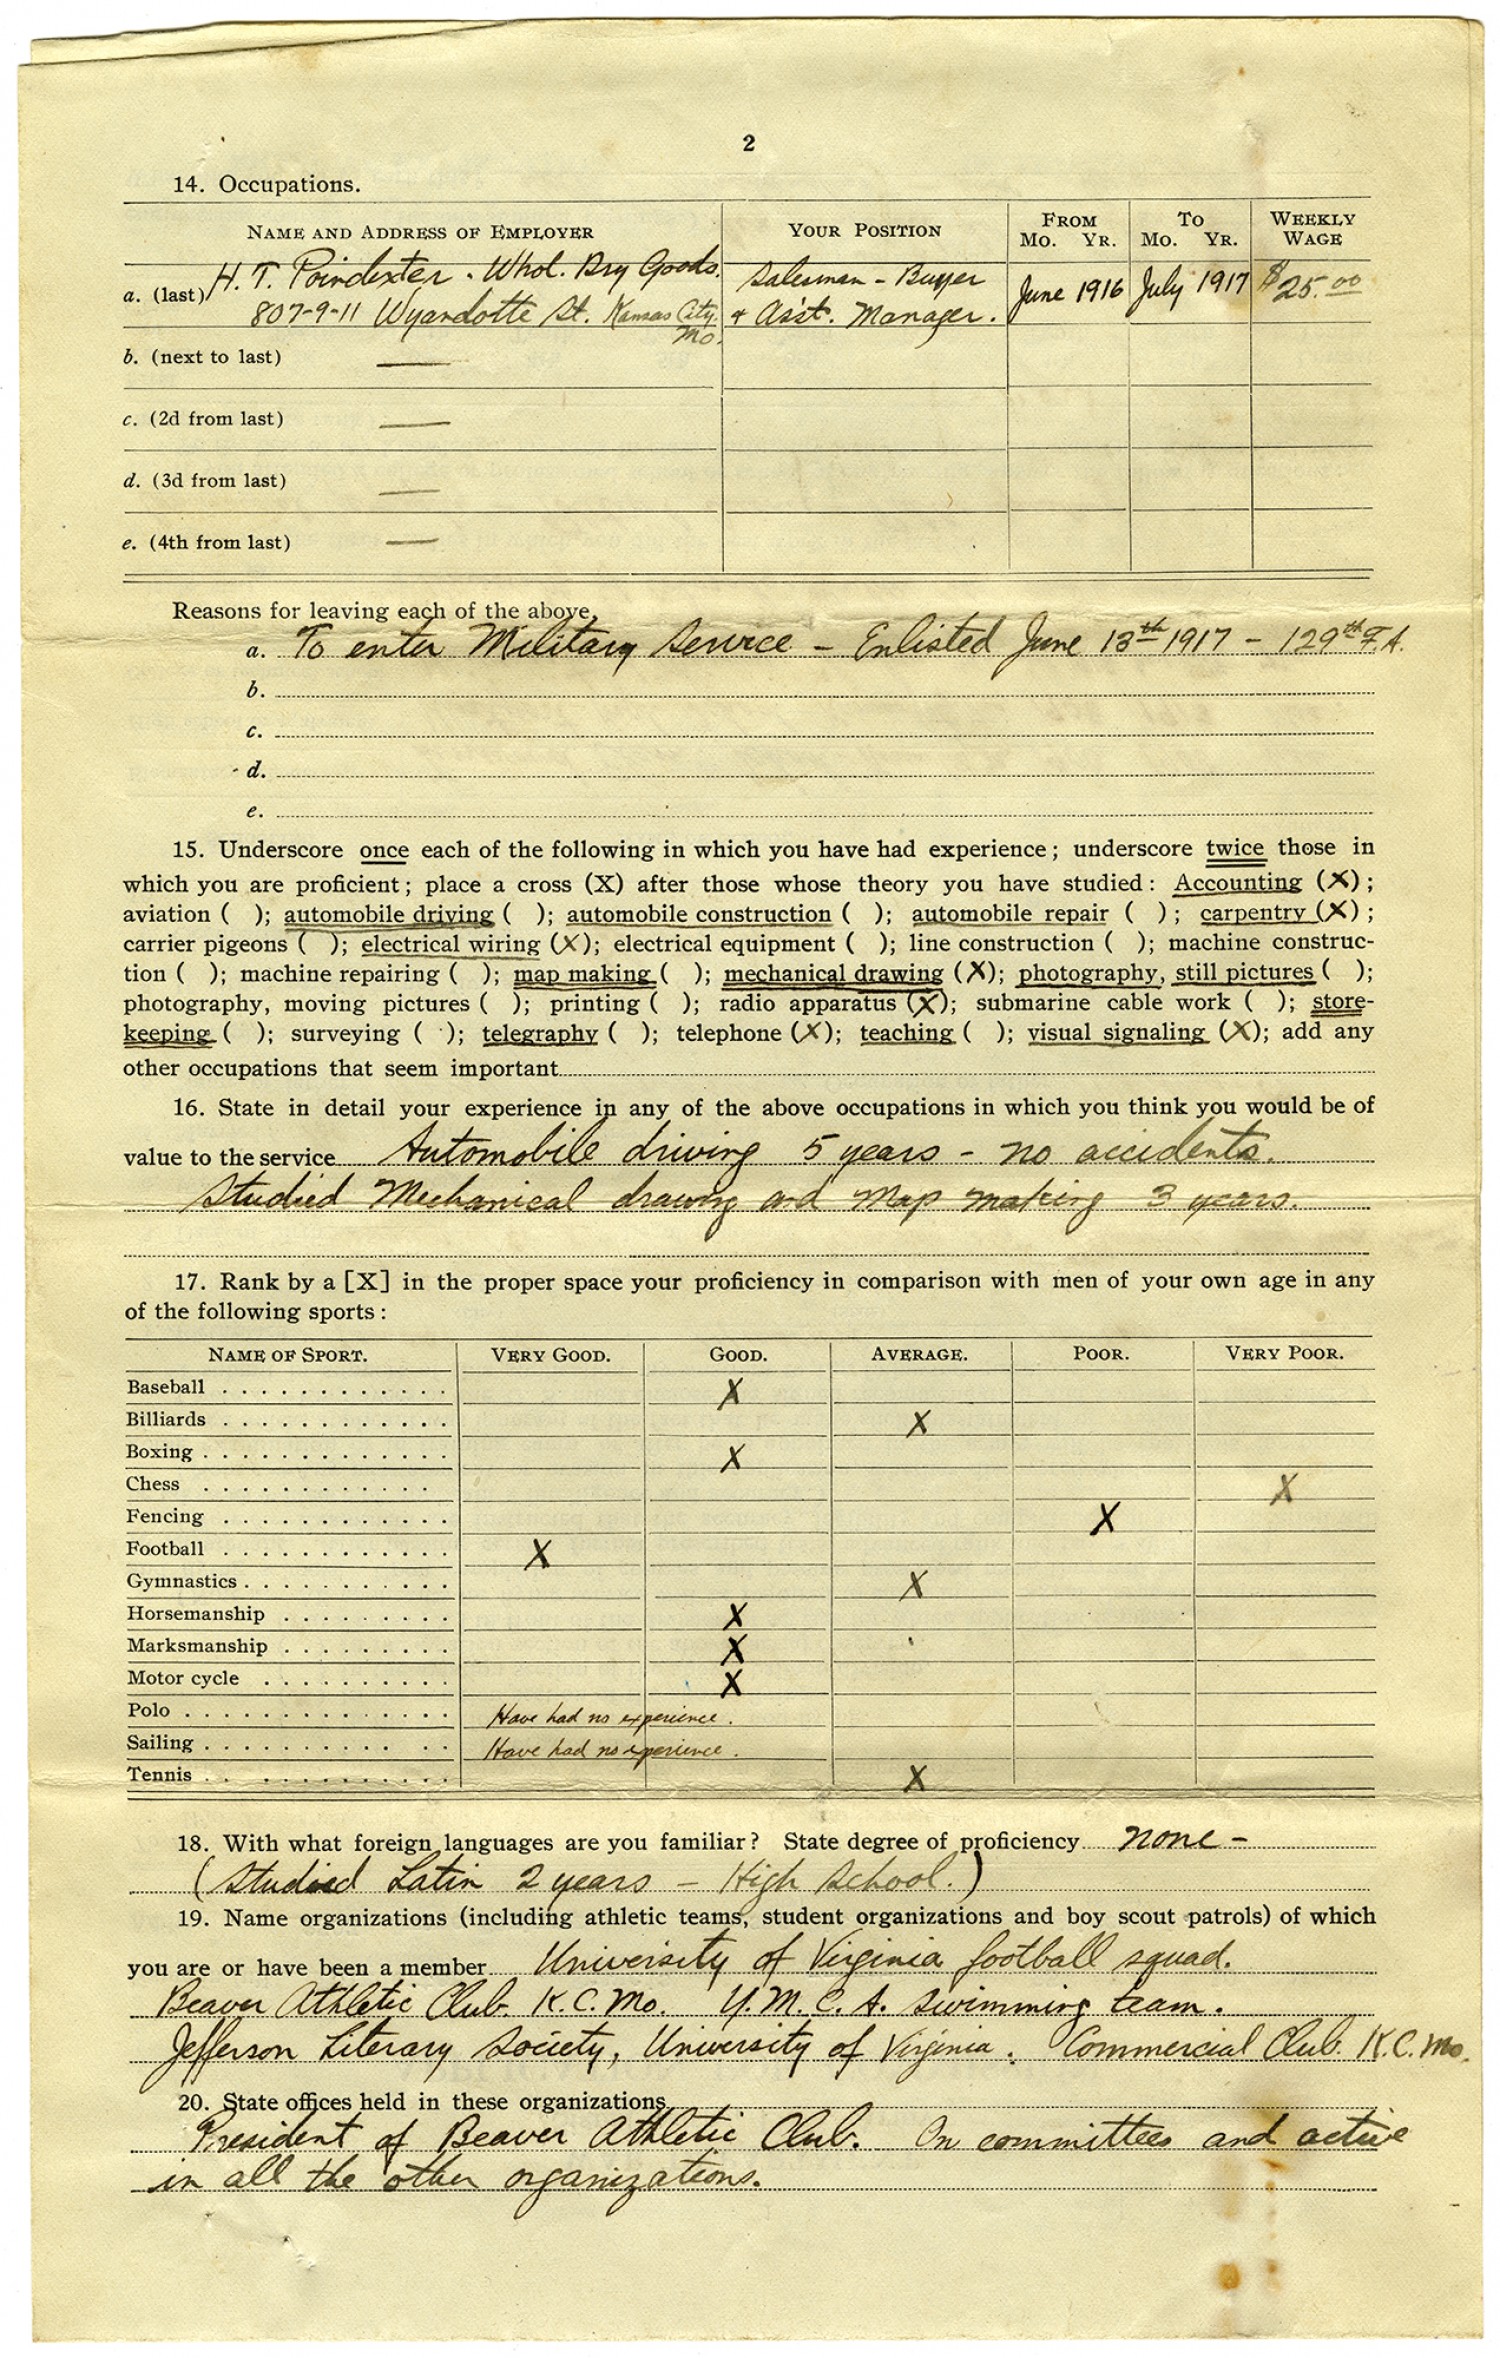 2
14. Occupations.
NAME AND ADDRESS OF EMPLOYER YOUR POSITION FROM MO. YR. TO MO. YR. WEEKLY WAGE
a. (last) H. T. Poindexter. Whol. Dry Goods. Salesman - Buyer June 1916 July 1917 $25.00
807-9-11 Wyandotte St. Kansas City. Mo. & Ass't. Manager.
b. (next to last) —
c. (2d from last) —
d. (3d from last) —
e. (4th from last) —
Reasons for leaving each of the above.
a. To enter Military Service - Enlisted June 13th 1917 - 129th F.A.
b.
c.
d.
e.
15. Underscore once each of the following in which you have had experience; underscore twice those in
which you are proficient; place a cross (X) after those whose theory you have studied: Accounting (X);
aviation ( ); automobile driving ( ); automobile construction ( ); automobile repair ( ); carpentry (X);
carrier pigeons ( ); electrical wiring (X); electrical equipment ( ); line construction ( ); machine construc-
tion ( ); machine repairing ( ); map making ( ); mechanical drawing (X); photography, still pictures ( );
photography, moving pictures ( ); printing ( ); radio apparatus (X); submarine cable work ( ); store-
keeping ( ); surveying ( ); telegraphy ( ); telephone (X); teaching ( ); visual signaling (X); add any
other occupations that seem important
16. State in detail your experience in any of the above occupations in which you think you would be of
value to the service Automobile driving 5 years - no accidents.
Studied Mechanical drawing and Map making 3 years.
17. Rank by a [X] in the proper space your proficiency in comparison with men of your own age in any
of the following sports:
NAME OF SPORT. VERY GOOD. GOOD. AVERAGE. POOR. VERY POOR.
Baseball X
Billiards X
Boxing X
Chess X
Fencing X
Football X
Gymnastics X
Horsemanship X
Marksmanship X
Motor cycle X
Polo Have had no experience.
Sailing Have had no experience.
Tennis X
18. With what foreign languages are you familiar? State degree of proficiency none -
(Studied Latin 2 years - High School.)
19. Name organizations (including athletic teams, student organizations and boy scout patrols) of which
you are or have been a member University of Virginia football squad.
Beaver Athletic Club. K.C. Mo. Y.M.C.A. Swimming team.
Jefferson Literary Society, University of Virginia. Commercial Club. K.C. Mo.
20. State offices held in these organizations
President of Beaver Athletic Club. On committees and active
in all the other organizations.